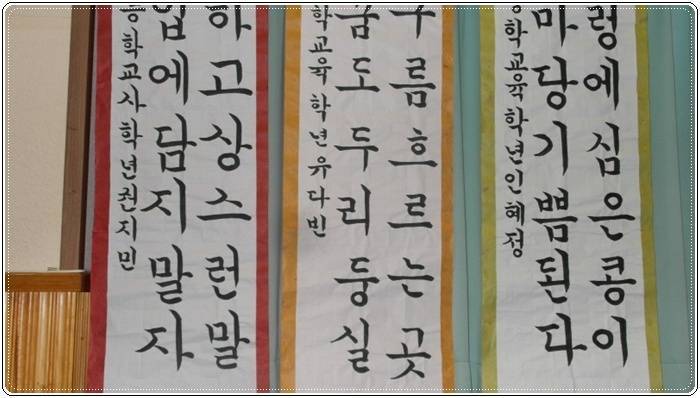 에심은콩이
마당기쁨된다
학교육학년인혜정
구름흐르는곳
도두리둥실
학교육학년유다빈
하고상스런말
입에담지말자
등학교사학년권지민